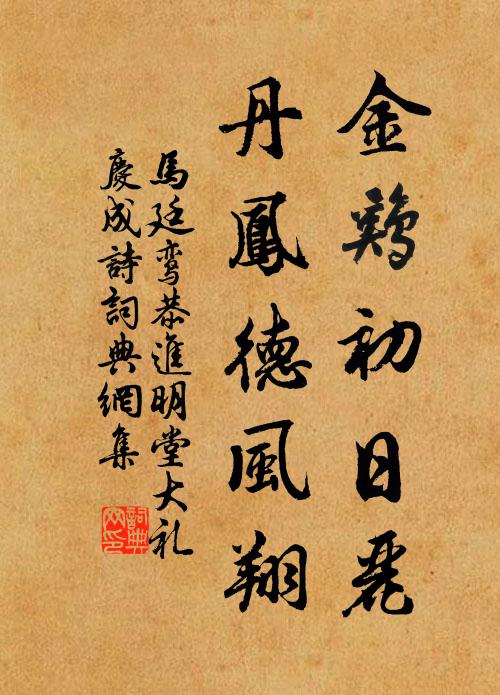 金鷄初日麗
丹鳳德風翔
馬廷鸞恭進明堂大礼
慶成詩詞典網集
詞典網印